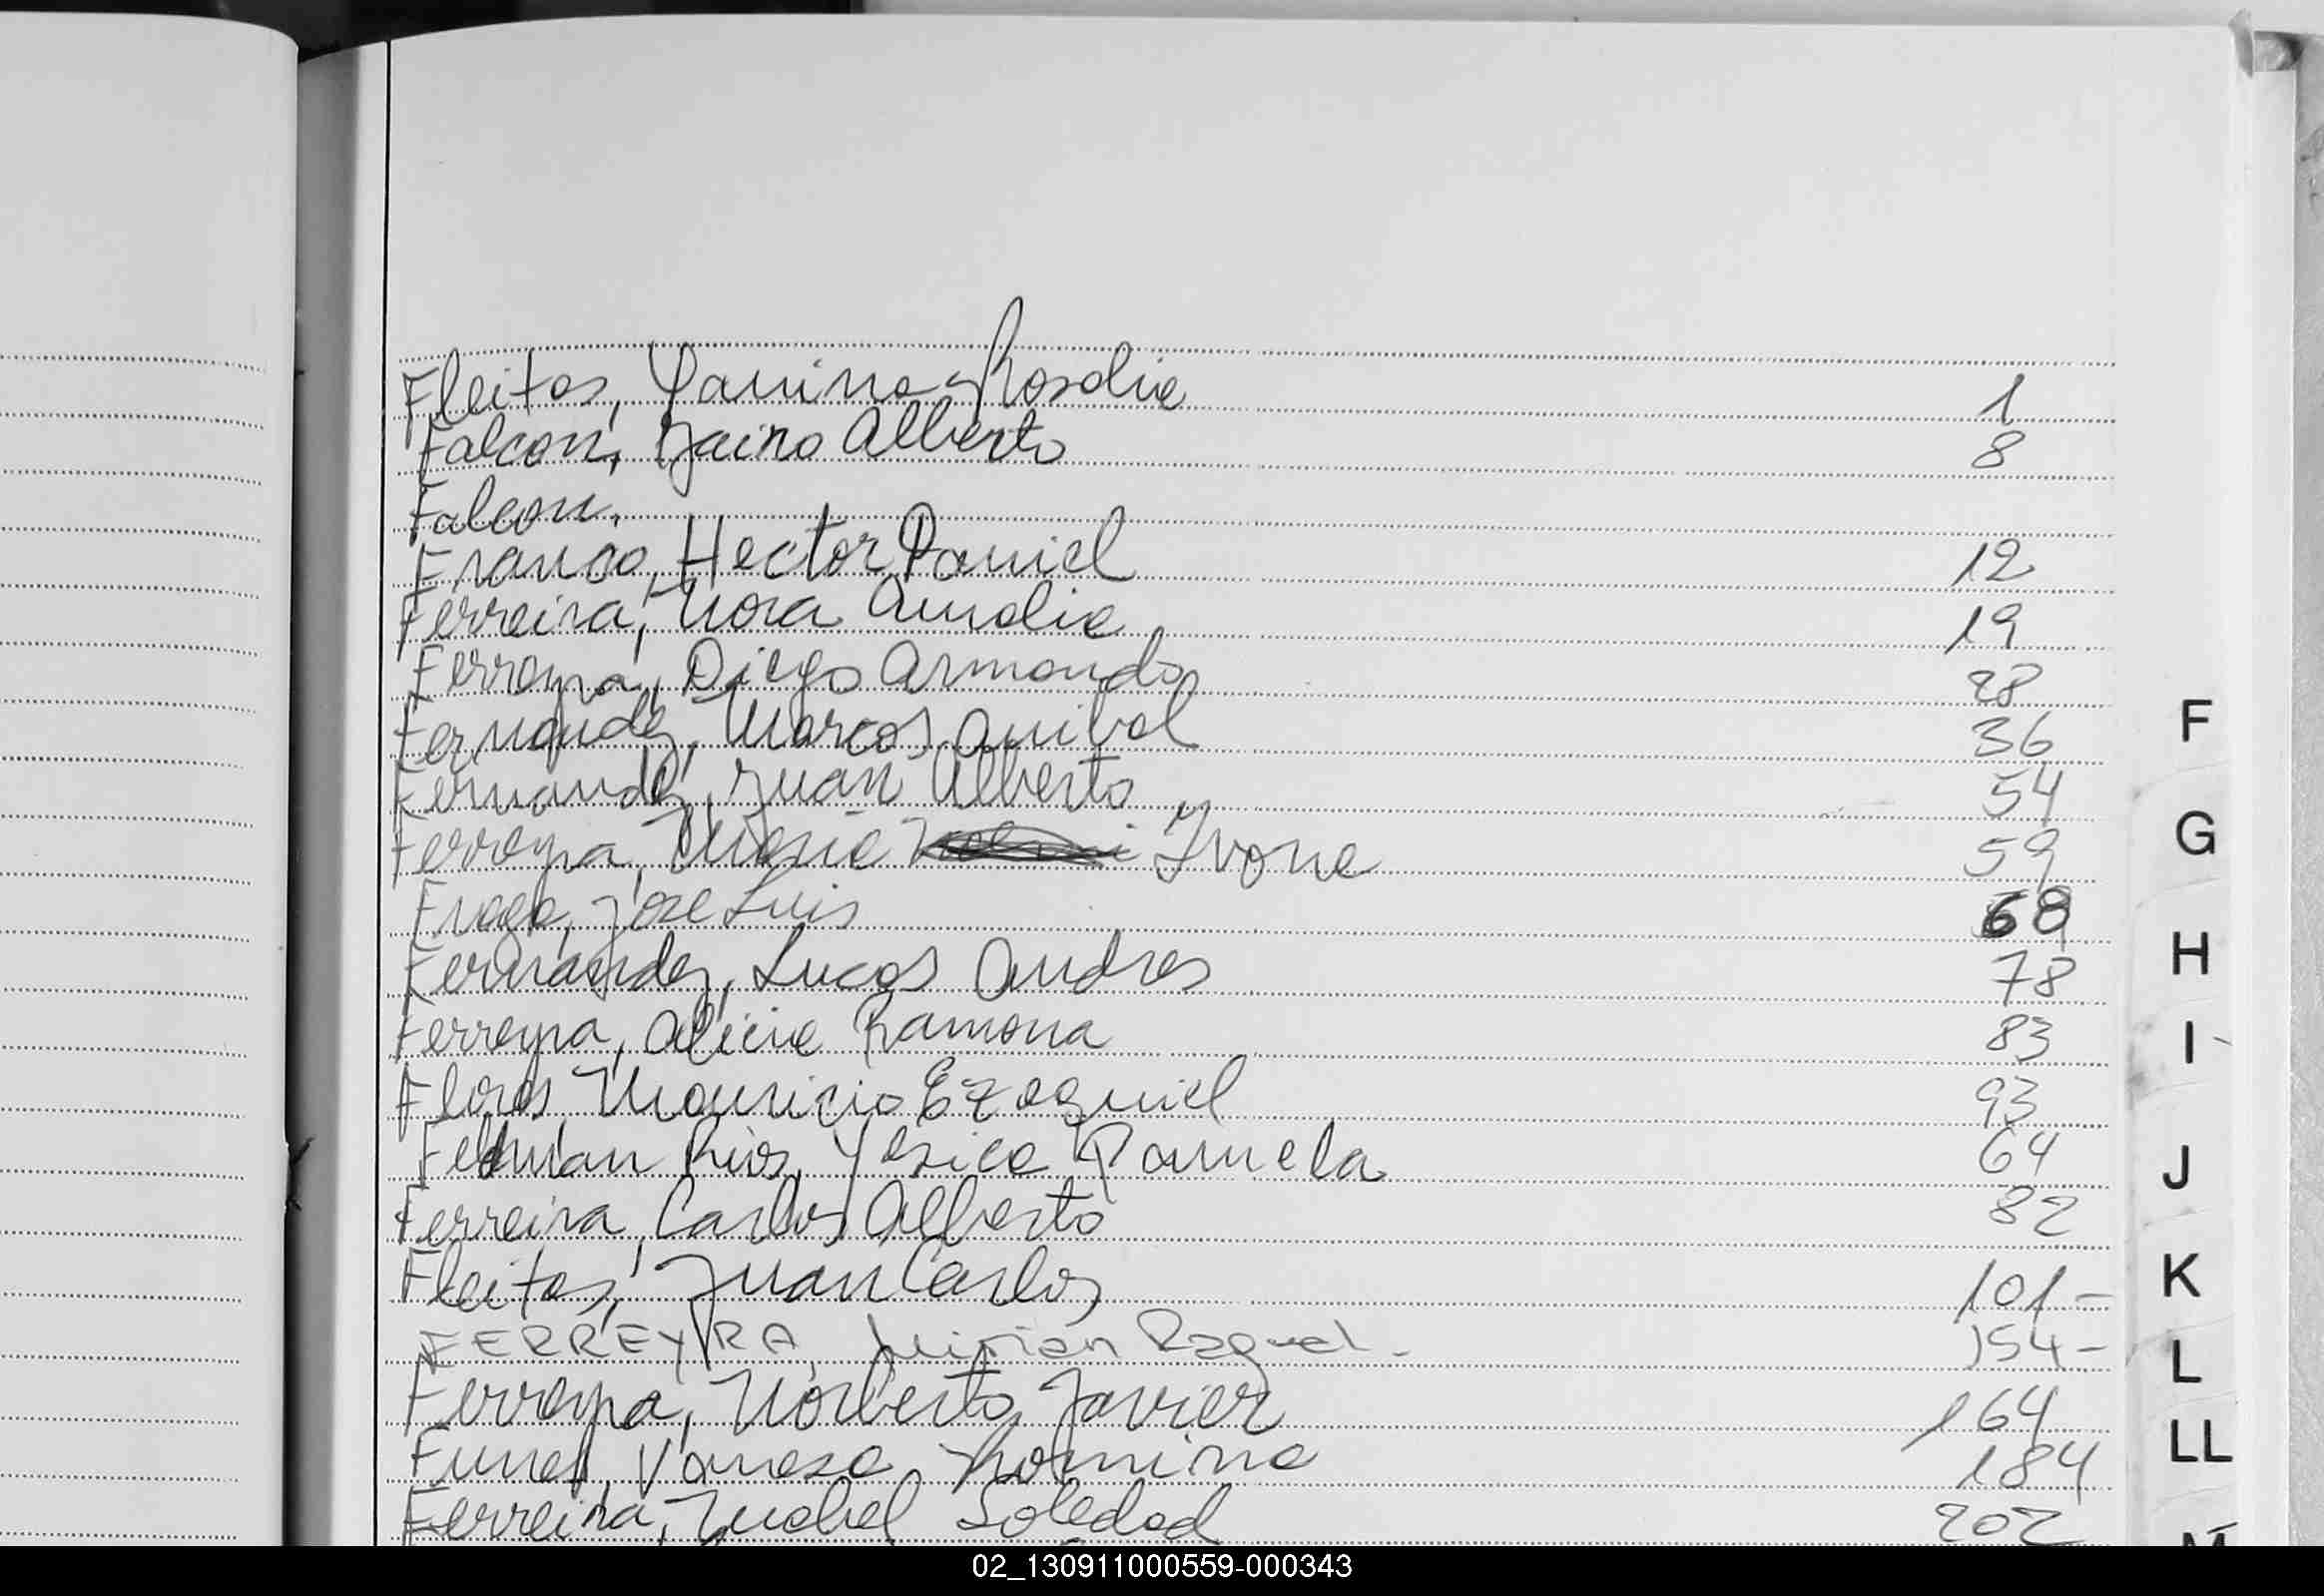 Fleitas, Yanina Rosalia 1
Falcon, Jairo Alberto 8
Falcon,
Franco, Hector Daniel 12
Ferreira, Nora Amalia 19
Ferreyra, Diego Armando 28
Fernandez, Marcos Anibal 36
Fernandez, Juan Alberto 54
Ferreyra, Maria Ivone 59
Fraga, Jose Luis 68
Fernandez, Lucas Andres 78
Ferreyra, Alicia Ramona 83
Flores Mauricio Ezequiel 93
Feltman Rios, Yesica Pamela 64
Ferreira, Carlos Alberto 82
Fleitas, Juan Carlos 101-
FERREYRA, Mirian Raquel- 154-
Ferreyra, Norberto Javier 164
Funes, Vanesa Romina 184
Ferreira, Soledad 202
F
G
H
I
J
K
L
LL
M
02_130911000559-000343